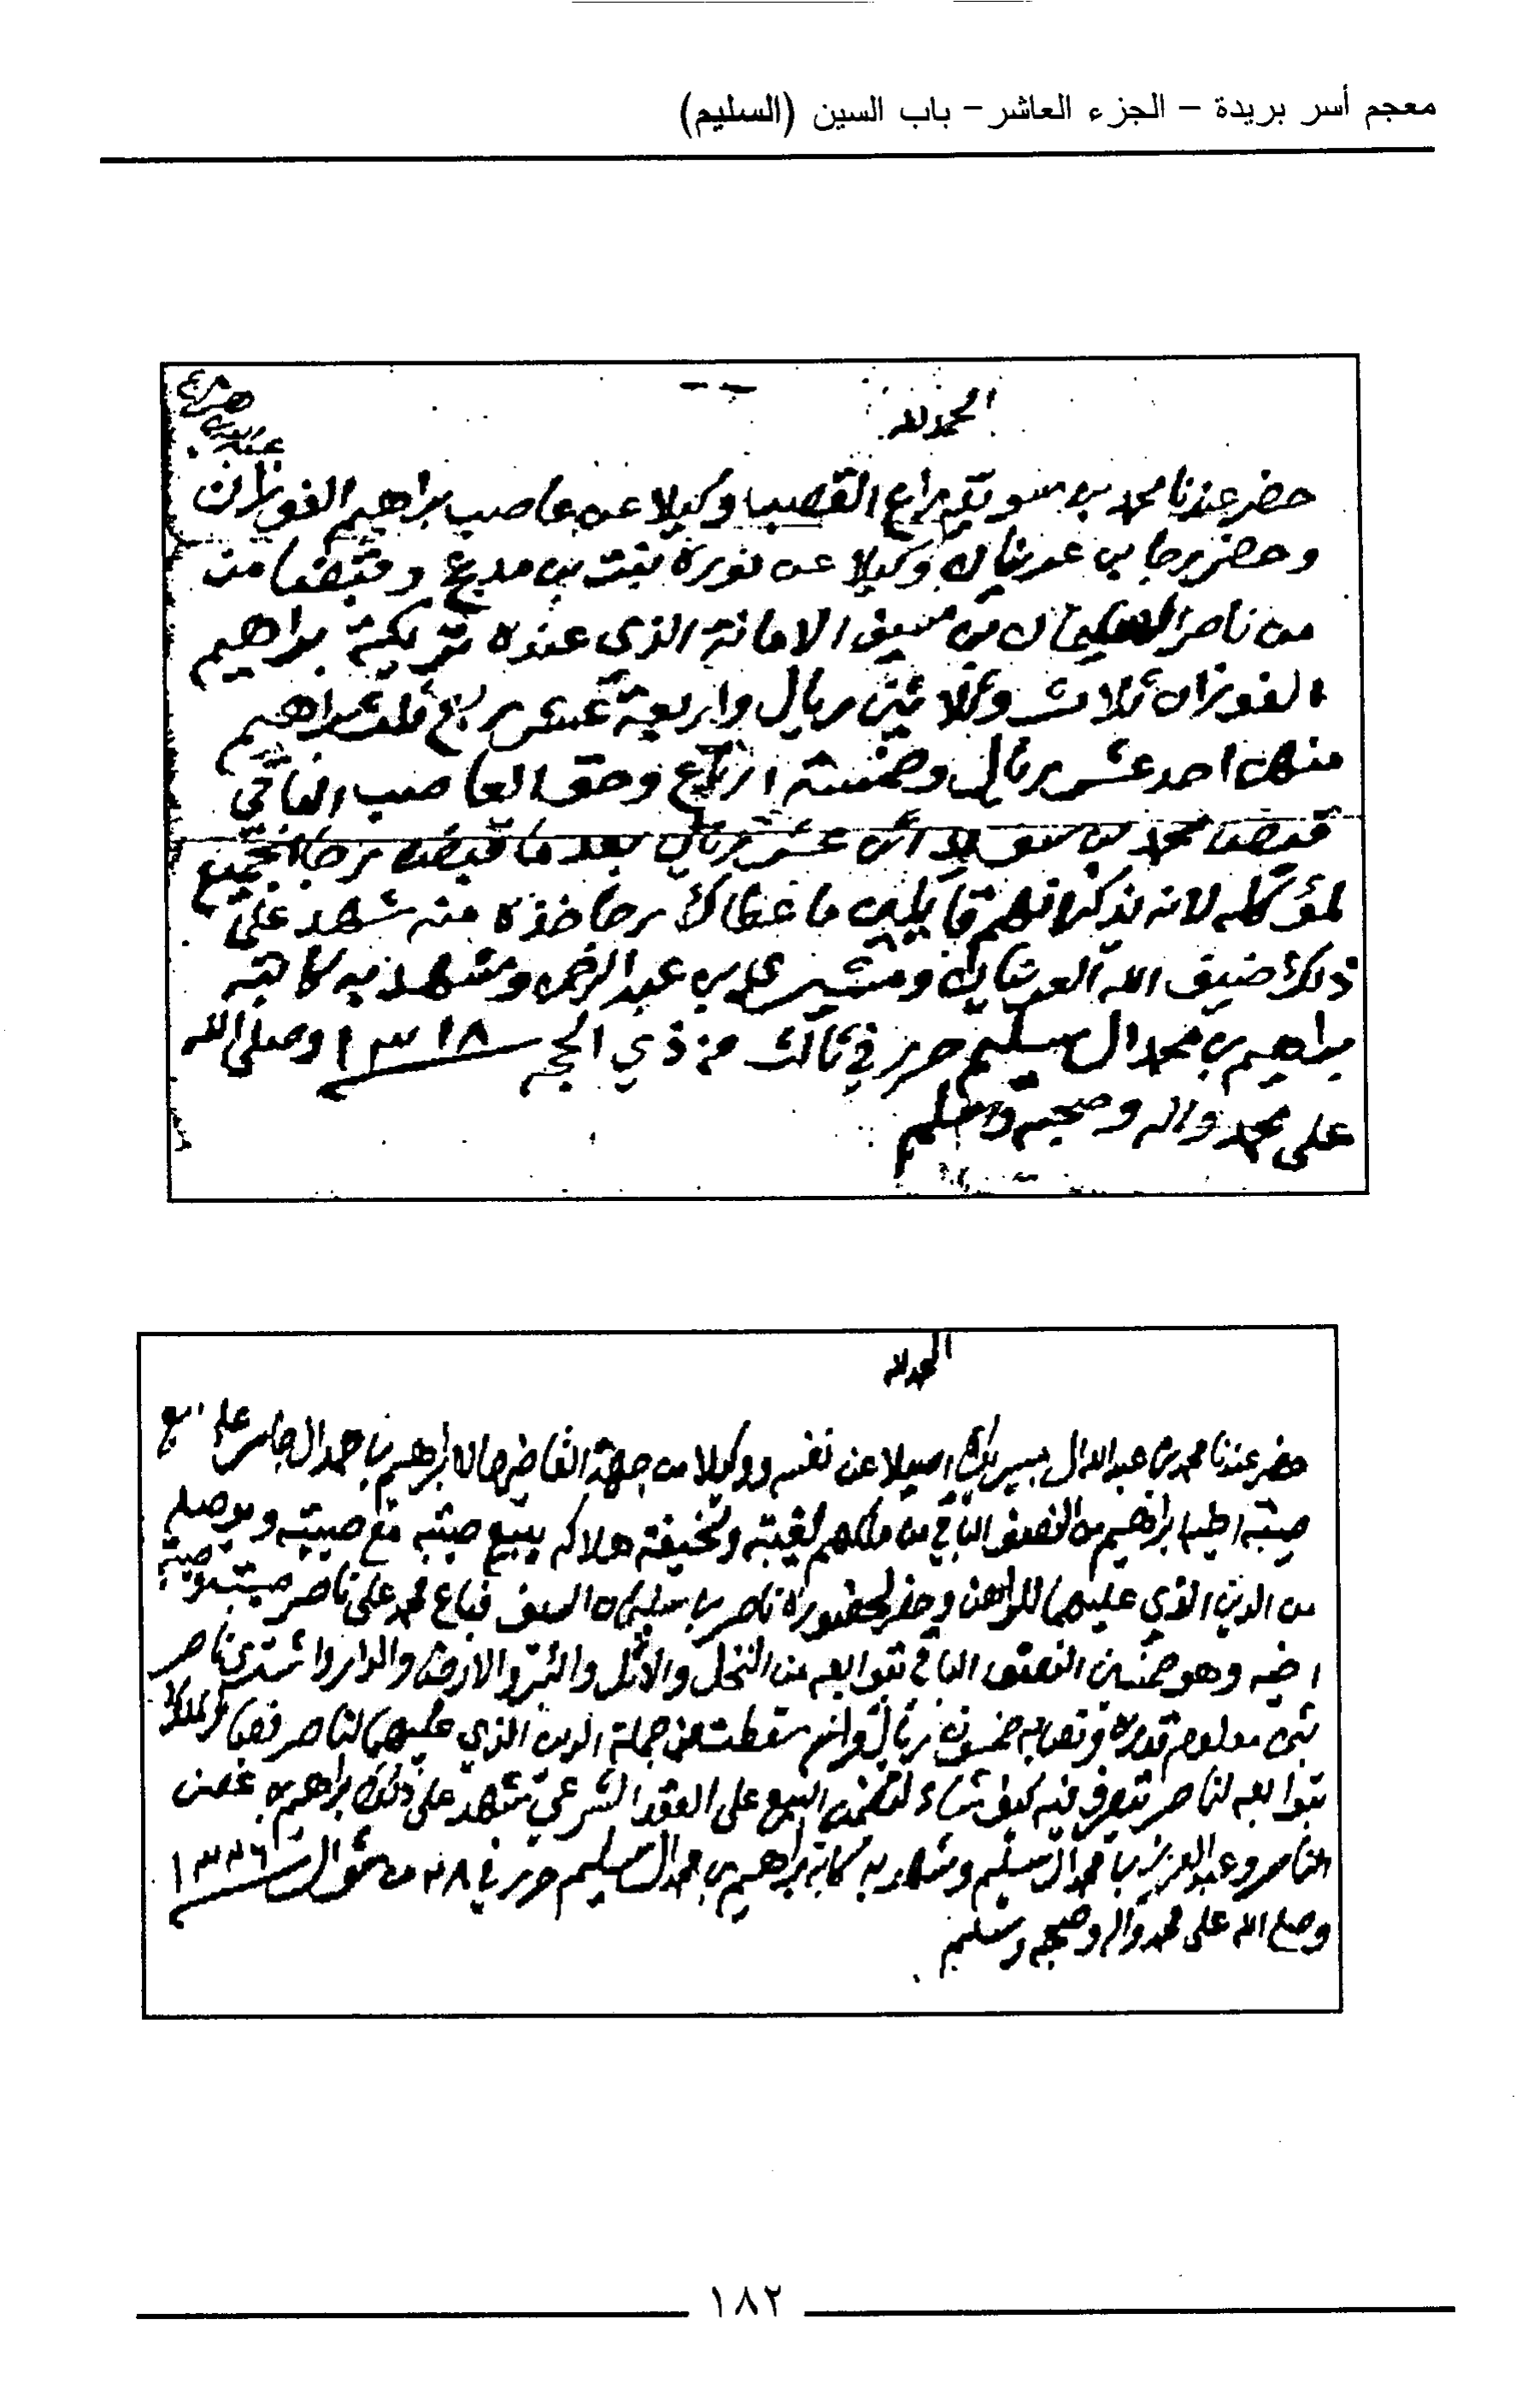 معجم أسر بريدة – الجزء العاشر – باب السين (السليم)
الحمد لله
حضر عندنا محمد بن سويلم راع القصيبا وكيلا عن عاصب براهيم الفوزان
وحضر رجا بن عدينان وكيلا عن نورة بنت بن مديع وقبضا من
من ناصر السليمان بن سيف الامانة الذي عنده تريكة براهيم
الفوزان ثلاث وثلاثين ريال واربعة عشر ربع ثلث براهيم
منهن احد عشر ريال وخمسة ارباع وحق العاصب الباقي
قبض محمد بن سويلم اثن عشر ريال بعد ما قبض رجا الجميع
لموكله لانه يذكر انهم قايلين ما عطاك رجا خذه منه شهد على
ذلك ضيف الله العدينان ومشيري بن عبدالرحمن وشهد به كاتبه
براهيم بن محمد ال سليم حرر في ثالث من ذي الحجه ١٣١٨ وصلى الله
على محمد واله وصحبه وسلم
الحمد لله
حضر عندنا محمد بن عبدالله ال اصيلا عن نفسه ووكيلا من جهة القاضي خاله ابراهيم بن حمد ال جاسر على بيع
صيبة ابراهيم من النصف الباقي من ملكهم لغيبته هلاكه يبيع صيبته مع صيبته ويوصله
من الدين الذي عليهما للراهن وحضر لحضوره ناصر بن سليمان السيف فباع محمد على ناصر صيبته وصيبة
اخيه وهو خمسين النصف الباقي بتوابعه من النخل والاثل والبئر والارض والدار واشترى ناصر
بثمن معلوم قدره ونصابه خمسون ريال سقطت من جملة الدين الذي عليهما لناصر فصار الملك
بتوابعه لناصر يتصرف فيه كيف شاء البيع على العقد الشرعي شهد على ذلك براهيم بن غصن
الناصر وعبدالعزيز بن محمد ال سليم وشهد به كاتبه براهيم بن محمد ال سليم حرر في ٢٨ من شوال ١٣٢٦
وصلى الله على محمد واله وصحبه وسلم
١٨٢